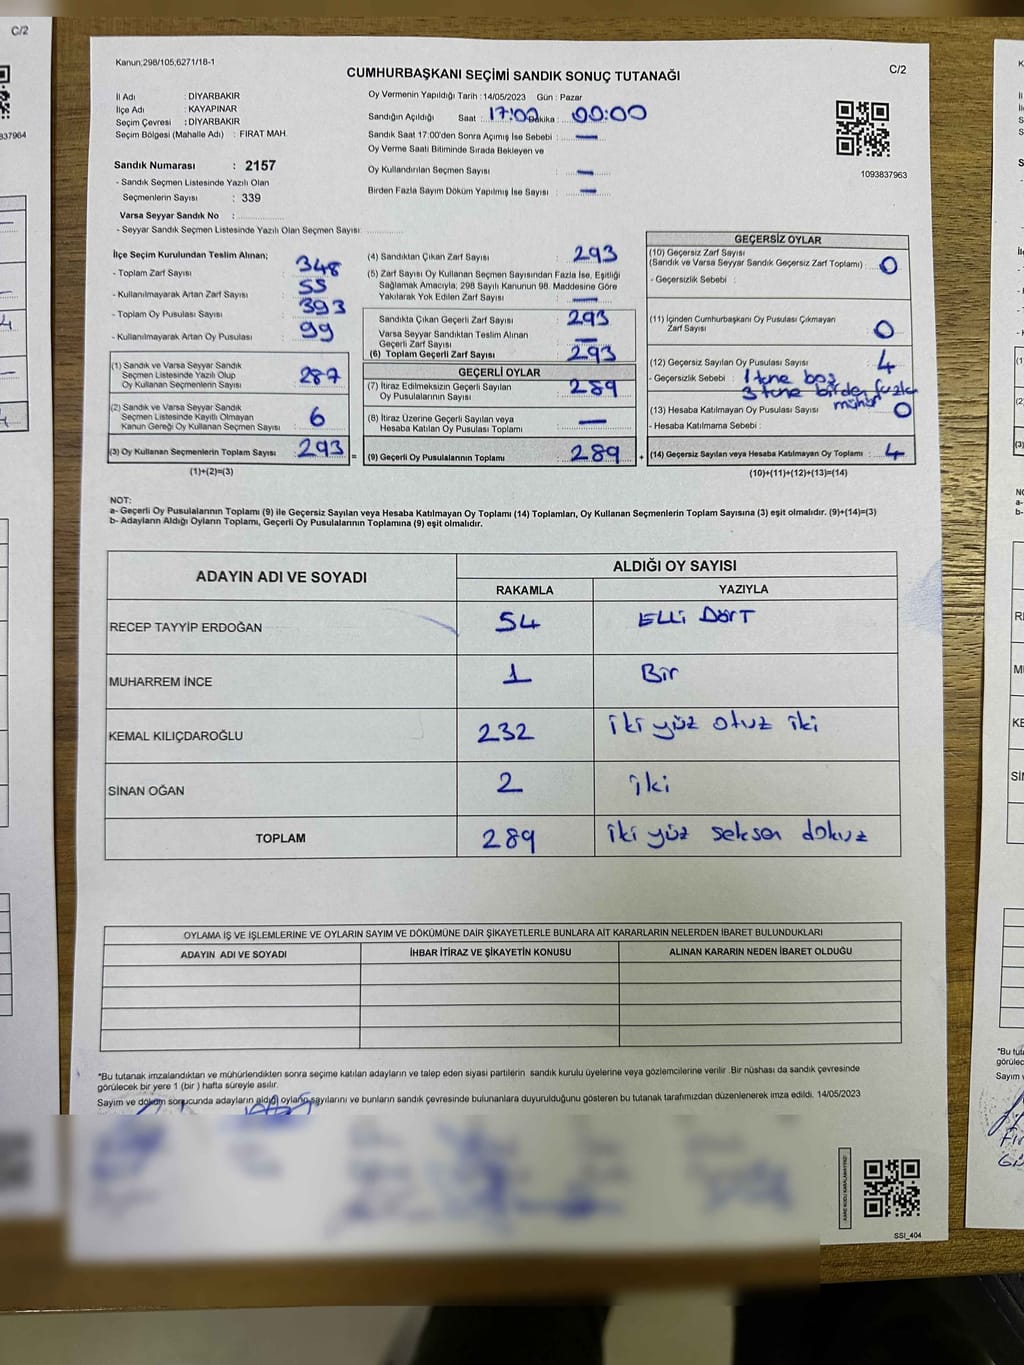 C/2
Kanun;298/105,6271/18-1
CUMHURBAŞKANI SEÇİMİ SANDIK SONUÇ TUTANAĞI
C/2
İl Adı : DİYARBAKIR
İlçe Adı : KAYAPINAR
Seçim Çevresi : DİYARBAKIR
Seçim Bölgesi (Mahalle Adı) : FIRAT MAH.
Sandık Numarası : 2157
- Sandık Seçmen Listesinde Yazılı Olan
Seçmenlerin Sayısı : 339
Varsa Seyyar Sandık No :
- Seyyar Sandık Seçmen Listesinde Yazılı Olan Seçmen Sayısı:
Oy Vermenin Yapıldığı Tarih : 14/05/2023 Gün : Pazar
Sandığın Açıldığı Saat : 17:00 Dakika : 00:00
Sandık Saat 17:00'den Sonra Açımış İse Sebebi : —
Oy Verme Saati Bitiminde Sırada Bekleyen ve
Oy Kullandırılan Seçmen Sayısı : —
Birden Fazla Sayım Döküm Yapılmış İse Sayısı : —
1093837963
İlçe Seçim Kurulundan Teslim Alınan;
- Toplam Zarf Sayısı : 348
- Kullanılmayarak Artan Zarf Sayısı : 55
- Toplam Oy Pusulası Sayısı : 393
- Kullanılmayarak Artan Oy Pusulası : 99
(1) Sandık ve Varsa Seyyar Sandık
Seçmen Listesinde Yazılı Olup
Oy Kullanan Seçmenlerin Sayısı : 287
(2) Sandık ve Varsa Seyyar Sandık
Seçmen Listesinde Kayıtlı Olmayan
Kanun Gereği Oy Kullanan Seçmen Sayısı : 6
(3) Oy Kullanan Seçmenlerin Toplam Sayısı : 293 =
(1)+(2)=(3)
(4) Sandıktan Çıkan Zarf Sayısı : 293
(5) Zarf Sayısı Oy Kullanan Seçmen Sayısından Fazla İse, Eşitliği
Sağlamak Amacıyla; 298 Sayılı Kanunun 98. Maddesine Göre
Yakılarak Yok Edilen Zarf Sayısı : —
Sandıkta Çıkan Geçerli Zarf Sayısı : 293
Varsa Seyyar Sandıktan Teslim Alınan
Geçerli Zarf Sayısı : —
(6) Toplam Geçerli Zarf Sayısı : 293
GEÇERLİ OYLAR
(7) İtiraz Edilmeksizin Geçerli Sayılan
Oy Pusulalarının Sayısı : 289
(8) İtiraz Üzerine Geçerli Sayılan veya
Hesaba Katılan Oy Pusulası Toplamı : —
(9) Geçerli Oy Pusulalarının Toplamı : 289 +
GEÇERSİZ OYLAR
(10) Geçersiz Zarf Sayısı
(Sandık ve Varsa Seyyar Sandık Geçersiz Zarf Toplamı) : 0
- Geçersizlik Sebebi :
(11) İçinden Cumhurbaşkanı Oy Pusulası Çıkmayan
Zarf Sayısı : 0
(12) Geçersiz Sayılan Oy Pusulası Sayısı : 4
- Geçersizlik Sebebi : 1 tane boş
3 tane birden fazla
mühür
(13) Hesaba Katılmayan Oy Pusulası Sayısı : 0
- Hesaba Katılmama Sebebi :
(14) Geçersiz Sayılan veya Hesaba Katılmayan Oy Toplamı : 4
(10)+(11)+(12)+(13)=(14)
NOT:
a- Geçerli Oy Pusulalarının Toplamı (9) ile Geçersiz Sayılan veya Hesaba Katılmayan Oy Toplamı (14) Toplamları, Oy Kullanan Seçmenlerin Toplam Sayısına (3) eşit olmalıdır. (9)+(14)=(3)
b- Adayların Aldığı Oyların Toplamı, Geçerli Oy Pusulalarının Toplamına (9) eşit olmalıdır.
ADAYIN ADI VE SOYADI ALDIĞI OY SAYISI
RAKAMLA YAZIYLA
RECEP TAYYİP ERDOĞAN 54 Elli Dört
MUHARREM İNCE 1 Bir
KEMAL KILIÇDAROĞLU 232 iki yüz otuz iki
SİNAN OĞAN 2 iki
TOPLAM 289 iki yüz seksen dokuz
OYLAMA İŞ VE İŞLEMLERİNE VE OYLARIN SAYIM VE DÖKÜMÜNE DAİR ŞİKAYETLERLE BUNLARA AİT KARARLARIN NELERDEN İBARET BULUNDUKLARI
ADAYIN ADI VE SOYADI İHBAR İTİRAZ VE ŞİKAYETİN KONUSU ALINAN KARARIN NEDEN İBARET OLDUĞU
*Bu tutanak imzalandıktan ve mühürlendikten sonra seçime katılan adayların ve talep eden siyasi partilerin sandık kurulu üyelerine veya gözlemcilerine verilir .Bir nüshası da sandık çevresinde
görülecek bir yere 1 (bir ) hafta süreyle asılır.
Sayım ve döküm sonucunda adayların aldığı oyların sayılarını ve bunların sandık çevresinde bulunanlara duyurulduğunu gösteren bu tutanak tarafımızdan düzenlenerek imza edildi. 14/05/2023
SSİ_404